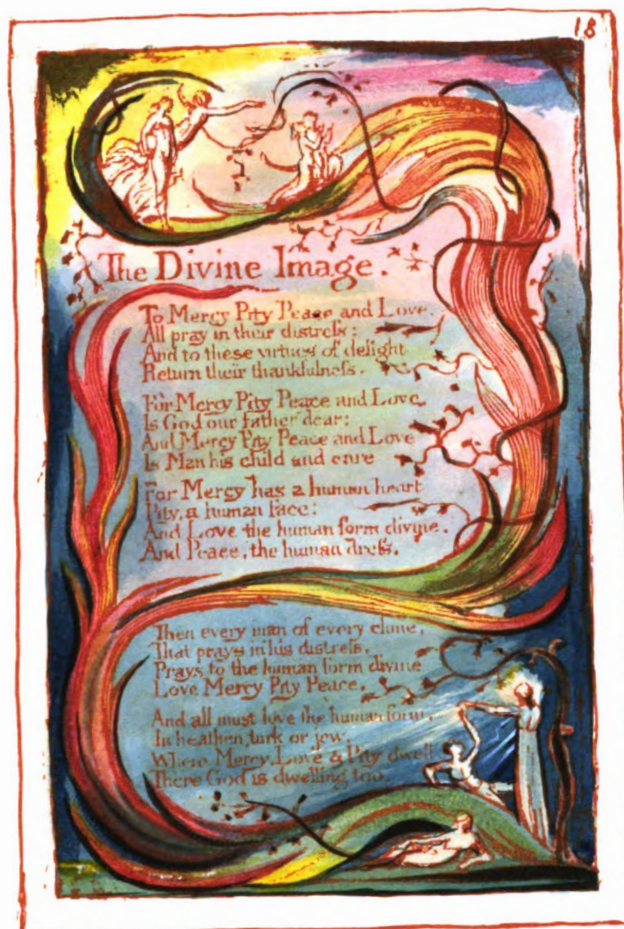 18
The Divine Image.
To Mercy Pity Peace and Love.
All pray in their distress:
And to these virtues of delight
Return their thankfulness.
For Mercy Pity Peace and Love
Is God our father dear:
And Mercy Pity Peace and Love
Is Man his child and care
For Mercy has a human heart
Pity, a human face:
And Love the human form divine.
And Peace, the human dress.
Then every man of every clime,
That prays in his distress,
Prays to the human form divine
Love Mercy Pity Peace.
And all must love the human form,
In heathen, turk or jew.
Where Mercy, Love & Pity dwell
There God is dwelling too.